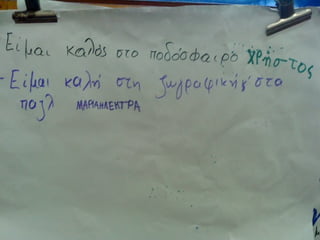 Είμαι καλός στο ποδόσφαιρο ΧΡΉΣΤΟΣ
- Είμαι καλή στη ζωγραφική κ' στα
παζλ ΜΑΡΙΑΗΛΕΚΤΡΑ